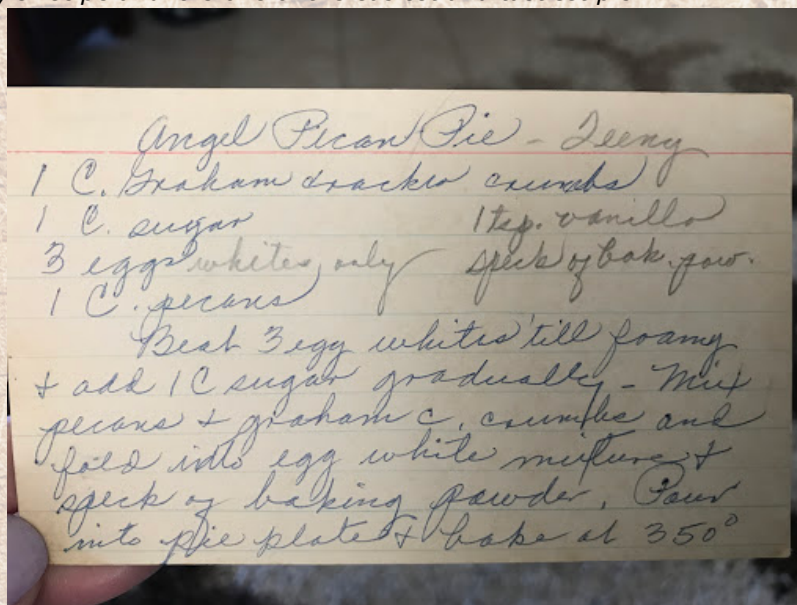 Angel Pecan Pie - Teeny
1 C. Graham cracker crumbs
1 C. sugar 1 tsp. vanilla
3 eggs whites only speck of bak. pow.
1 C. pecans
Beat 3 egg whites 'till foamy
& add 1 C sugar gradually - Mix
pecans & graham c. crumbs and
fold into egg white mixture &
speck of baking powder. Pour
into pie plate & bake at 350°